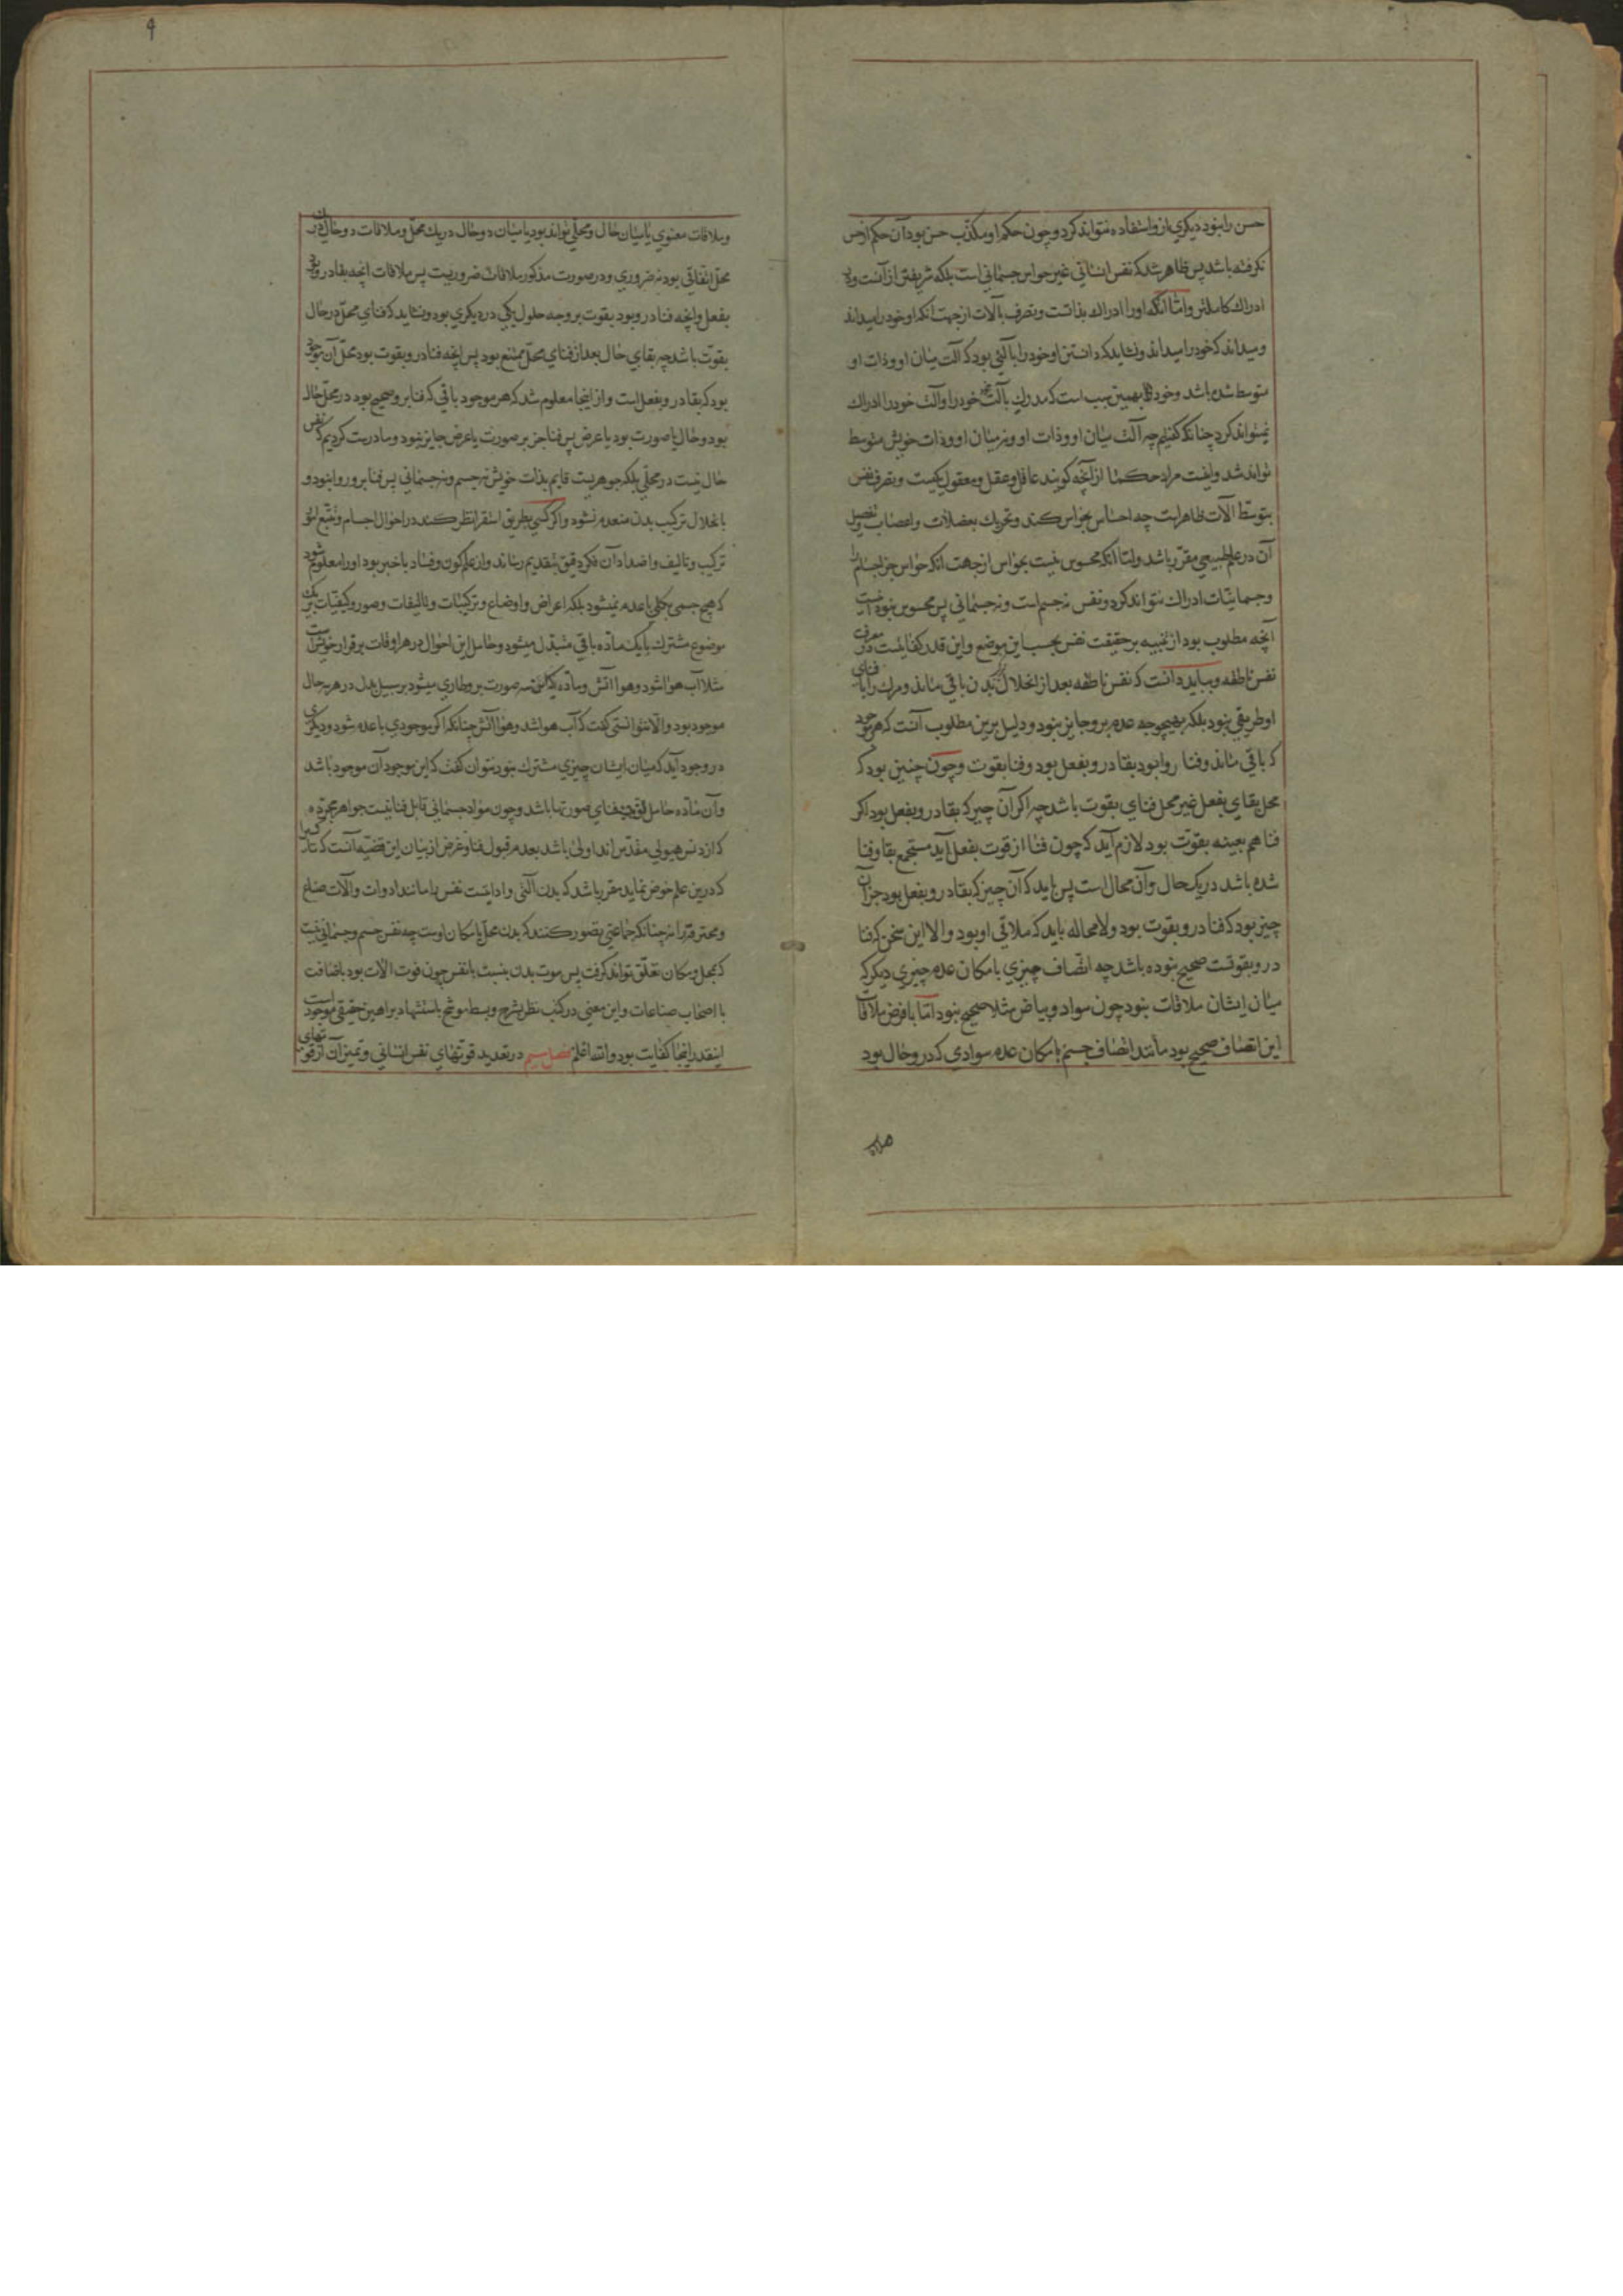 حس را نبود دیکری ازو استفاده نتواند کرد و چون حکم او مکذب حس بود آن حکم از حس
نکرفته باشد پس ظاهر شد که نفس انسانی غیر حواس جسمانی است بلکه شریفتر از آنست و در
ادراک کاملتر و اما آنکه اورا ادراک بذاتست و تصرف بآلات از جهت آنکه او خود را میداند
و میداند که خود را میداند و نشاید که دانستن او خود را بآلتی بود که آلت میان او و ذات او
متوسط شده باشد و خود بهمین سبب است که مدرک بآلت خود را و آلت خود را ادراک
نمیتواند کرد چنانکه کفتیم چه آلت میان او و ذات او و نه میان او و ذات خویش متوسط
تواند شد و اینست مراد حکما از آنچه کویند عاقل و عقل و معقول یکیست و تصرف نفس
بتوسط آلات ظاهرست چه احساس بحواس کند و تحریک بعضلات و اعصاب و تفصیل
آن در علم طبیعی مقرر باشد و اما آنکه محسوس نیست بحواس از جهت آنکه حواس جز اجسام را
و جسمانیات ادراک نتواند کرد و نفس نه جسم است و نه جسمانی پس محسوس نبود اینست
آنچه مطلوب بود از تنبیه بر حقیقت نفس بحسب این موضع و این قدر کفایتست در معرفت
نفس ناطقه و بباید دانست که نفس ناطقه بعد از انحلال ترکیب بدن باقی ماند و مرک را بافنای
او طریقی نبود بلکه بهیچوجه عدم برو جایز نبود و دلیل برین مطلوب آنست که هر موجود
که باقی ماند و فنا روا بود بقا درو بفعل بود و فنا بقوت و چون چنین بود که
محل بقای بفعل غیر محل فنای بقوت باشد چه اکر آن چیز که بقا درو بفعل بود اکر
فنا هم بعینه بقوت بود لازم آید که چون فنا از قوت بفعل آید مستجمع بقا و فنا
شده باشد در یک حال و آن محال است پس باید که آن چیز که بقا درو بفعل بود جز آن
چیز بود که فنا درو بقوت بود و لا محاله باید که ملاقی او بود و الا این سخن که فنا
درو بقوتست صحیح نبوده باشد چه اتصاف چیزی با مکان عدم چیزی دیکر که
میان ایشان ملاقات نبود چون سواد و بیاض مثلا صحیح نبود اما با فرض ملاقات
این اتصاف صحیح بود مانند اتصاف جسم بامکان عدم سوادی که درو حال بود
و ملاقات معنوی یا میان حال و محلی تواند بود یا میان دو حال در یک محل و ملاقات دو حال در یک
محل اتفاقی بود نه ضروری و در صورت مذکور ملاقات ضروریست پس ملاقات انچه بقا درو بود
بفعل و انچه فنا درو بود بقوت بر وجه حلول یکی در دیکری بود و نشاید که فنای محل در حال
بقوت باشد چه بقای حال بعد از فنای محل ممتنع بود پس انچه فنا درو بقوت بود محل آن موجود
بود که بقا درو بفعل است و از اینجا معلوم شد که هر موجود باقی که فنا برو صحیح بود در محل حال
بود و حال یا صورت بود یا عرض پس فنا جز بر صورت یا عرض جایز نبود و ما درست کردیم که نفس
حال نیست در محلی بلکه جوهریست قایم بذات خویش نه جسم و نه جسمانی پس فنا برو روا نبود و
بانحلال ترکیب بدن منعدم نشود و اکر کسی بطریق استقرا نظر کند در احوال اجسام و تتبع امور
ترکیب و تالیف و اضداد آن فکر دقیق بتقدیم رساند و از علم کون و فساد باخبر بود او را معلوم شود
که هیچ جسمی بکلی باعدم نمیشود بلکه اعراض و اوضاع و ترکیبات و تالیفات و صور و کیفیات بر یک
موضوع مشترک یا یک ماده باقی متبدل میشود و حامل این احوال در هر اوقات بر قرار خویش است
مثلا آب هوا شود و هوا آتش و ماده که این سه صورت برو طاری میشود بر سبیل بدل در هر سه حال
موجود بود و الا نتوانستی کفت که آب هوا شد و هوا آتش چنانکه اکر موجودی باعدم شود و دیکری
در وجود آید که میان ایشان چیزی مشترک نبود نتوان کفت که این موجود آن موجود باشد
و آن ماده حامل قوت فنای صورتها باشد و چون مواد جسمانی قابل فنا نیست جواهر مجرده
که از دنس هیولی مقدس اند اولی باشد بعدم قبول فنا و غرض از بیان این قضیه آنست که تا کسی را
که درین علم خوض نماید مقرر باشد که بدن آلتی و اداتیست نفس را مانند ادوات و آلات صناع
و محترفه را نه چنانکه جماعتی تصور کنند که بدن محل یا مکان اوست چه نفس جسم و جسمانی نیست
که بمحل و مکان تعلق تواند کرفت پس موت بدن بنسبت با نفس چون فوت آلات بود باضافت
با اصحاب صناعات و این معنی در کتب نظر بشرح و بسط موشح باستشهاد براهین حقیقی موجود است
اینقدر اینجا کفایت بود و الله اعلم فصل سیم در تعدید قوتهای نفس انسانی و تمییز آن از قوتهای